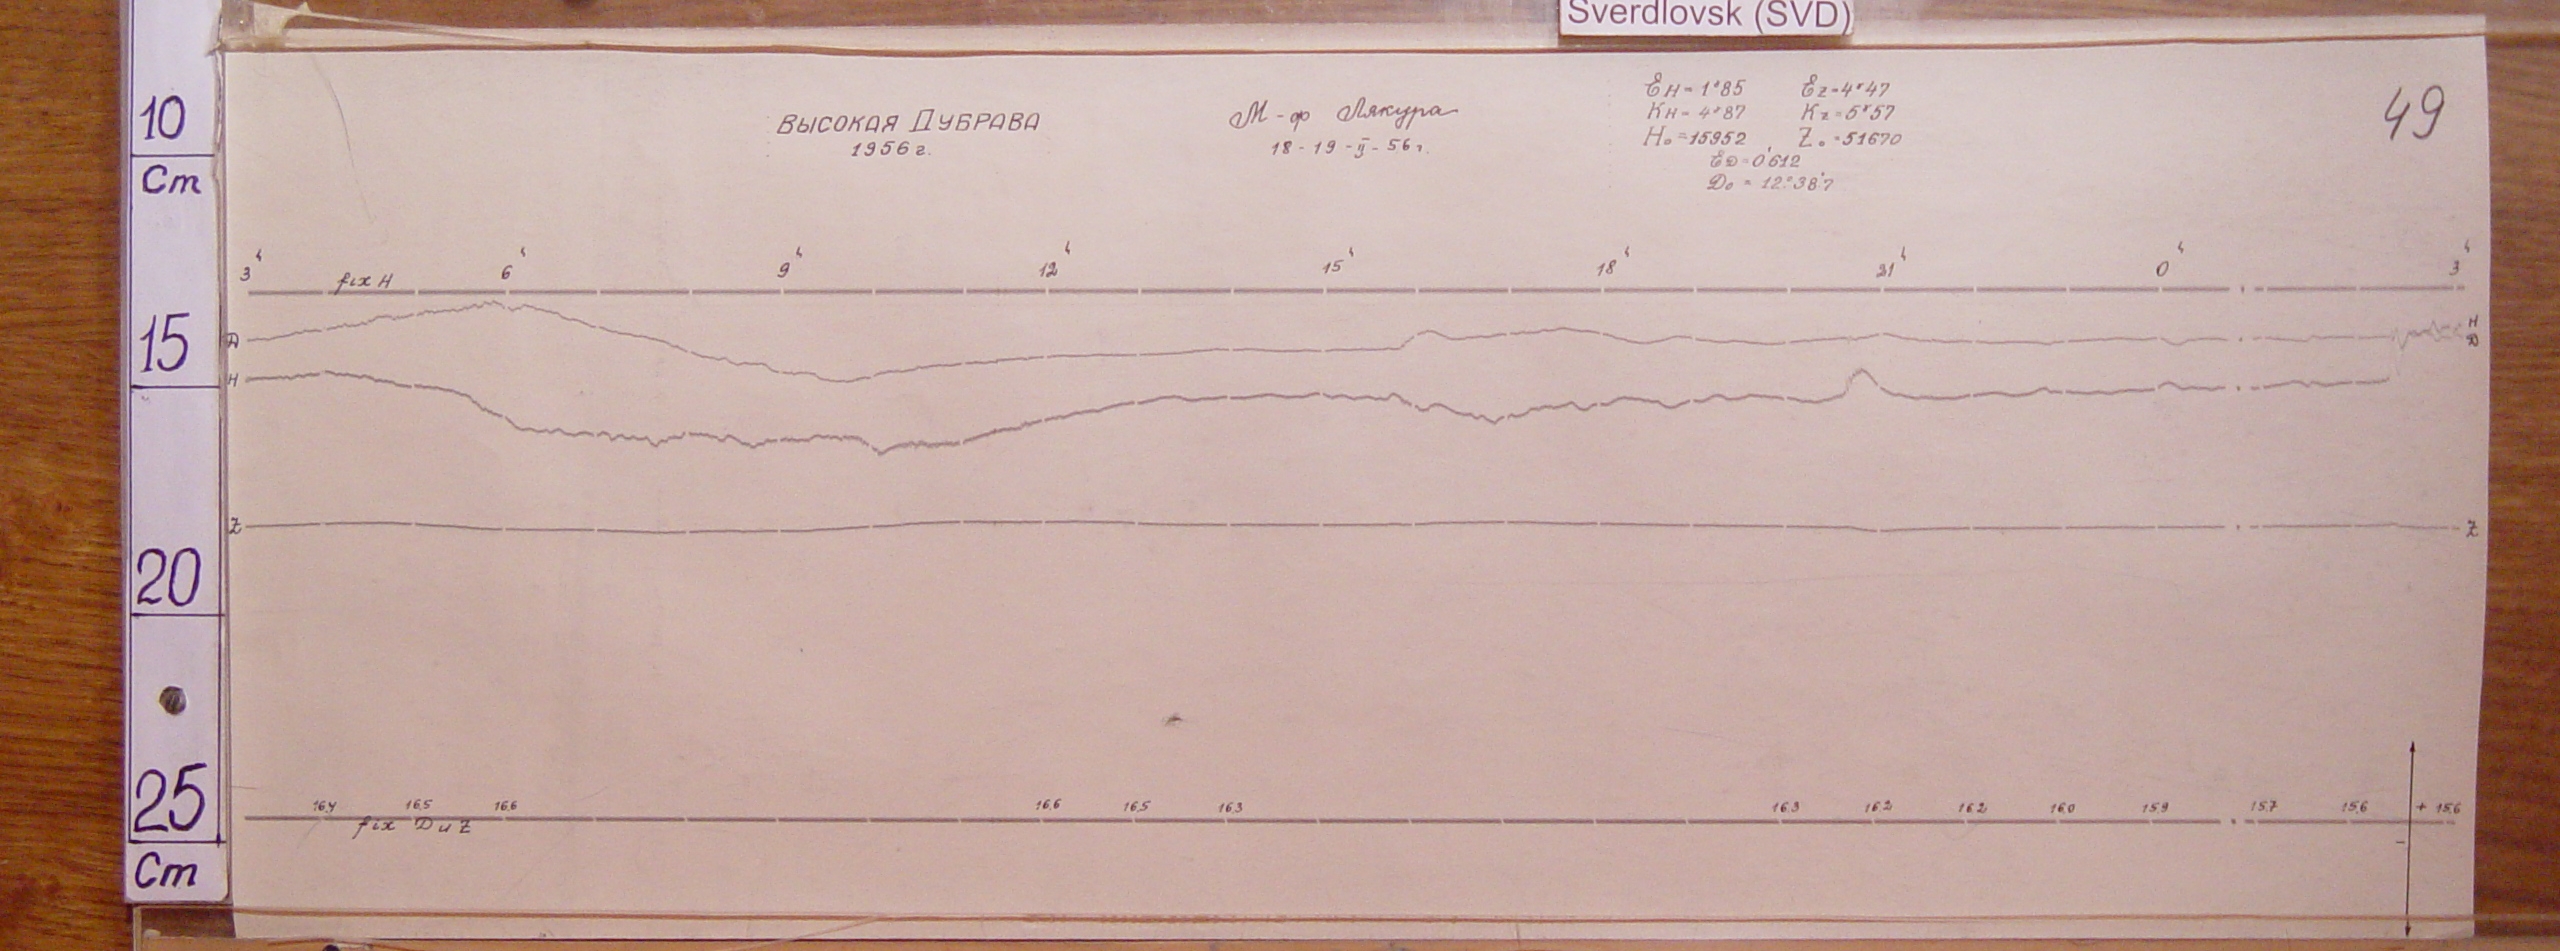 Sverdlovsk (SVD)
10
Cm
15
20
25
Cm
ВЫСОКАЯ ДУБРАВА
1956 г.
М-ф Лякура
18 - 19 - II - 56 г.
EH = 1ˠ85 EZ = 4ˠ47
KH = 4ˠ87 KZ = 5ˠ57
H₀ = 15952 Z₀ = 51670
ED = 0'612
D₀ = 12°38'7
49
3ч 6ч 9ч 12ч 15ч 18ч 21ч 0ч 3ч
fix H
D
H
H
D
Z
Z
16,4 16,5 16,6 16,6 16,5 16,3 16,3 16,2 16,2 16,0 15,9 15,7 15,6 + 15,6
fix D и Z
−